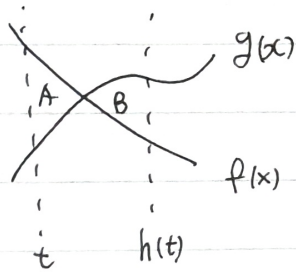 g(x)
A B
f(x)
t h(t)